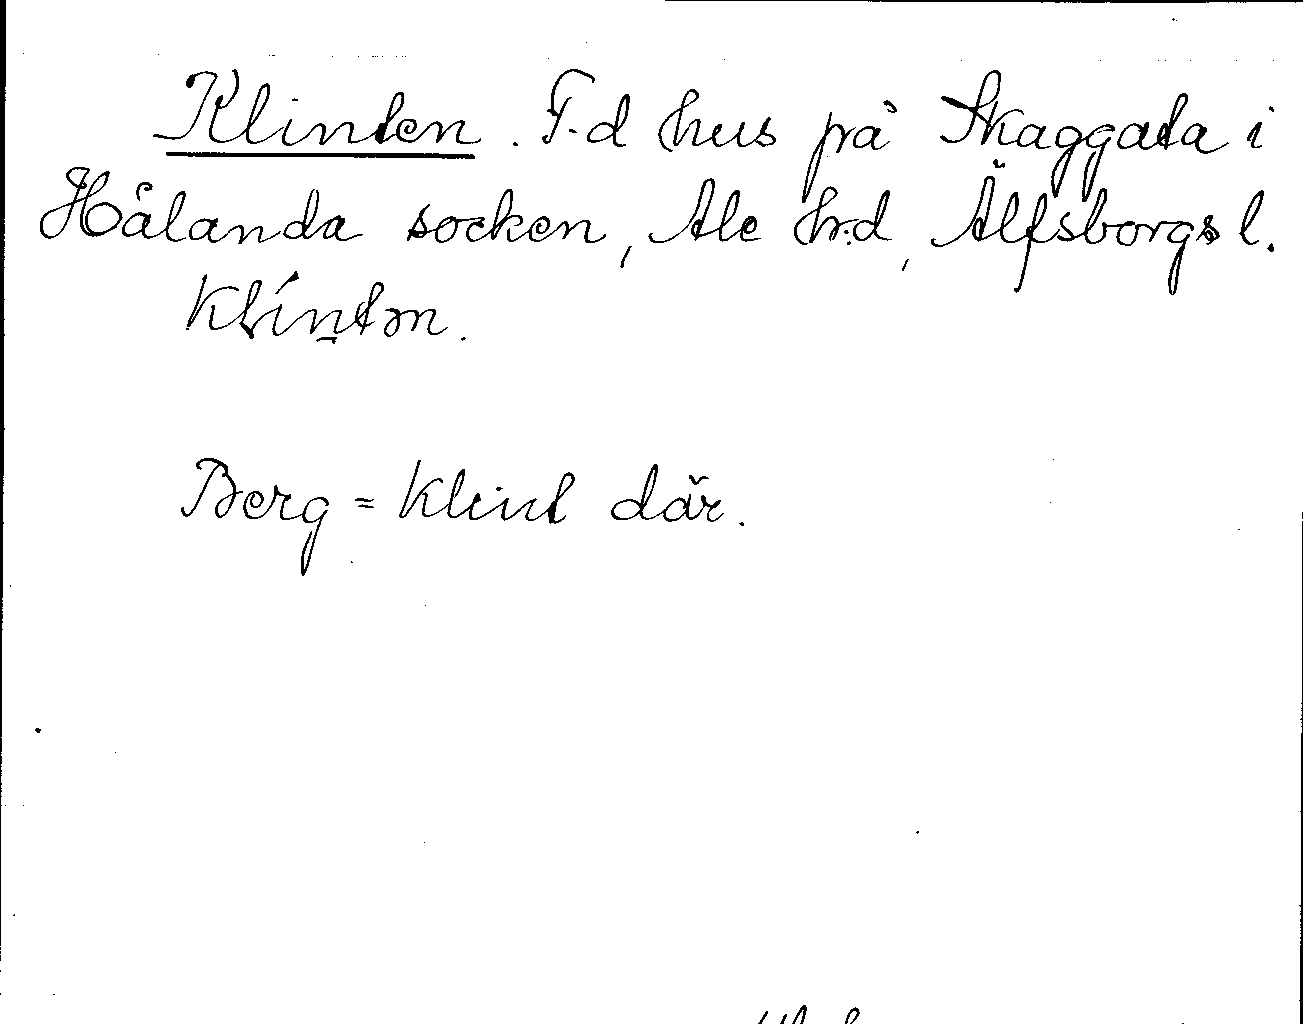 Klinten. F.d hus på Skaggata i
Hålanda socken, Ale hrd, Älfsborgs l.
klíntən.
Berg = klint där.